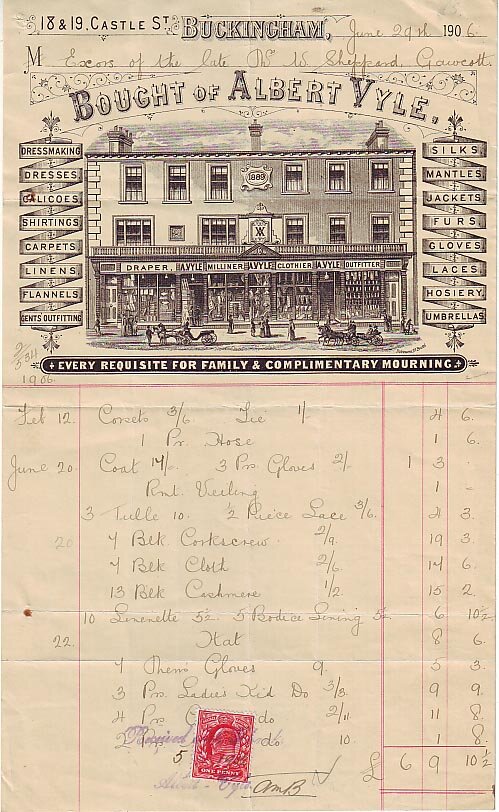 18 & 19, CASTLE ST. BUCKINGHAM, June 29th 1906.
M Exors of the late Mr W Sheppard, Gawcott.
BOUGHT OF ALBERT VYLE,
DRESSMAKING
DRESSES
CALICOES
SHIRTINGS
CARPETS
LINENS
FLANNELS
GENTS OUTFITTING
SILKS
MANTLES
JACKETS
FURS
GLOVES
LACES
HOSIERY
UMBRELLAS
1889
DRAPER, A.VYLE MILLINER A.VYLE CLOTHIER A.VYLE OUTFITTER
EVERY REQUISITE FOR FAMILY & COMPLIMENTARY MOURNING.
1906
Feb 12. Corsets 3/6 Tie 1/- 4 6.
1 Pr. Hose 1 6.
June 20. Coat 17/- 3 Prs Gloves 2/- 1 3 .
Veiling 1 -
3 Tulle 10. ½ Piece Lace 3/6. 4 3.
20 7 Blk Corkscrew 2/9. 19 3.
7 Blk Cloth 2/6. 17 6.
13 Blk Cashmere 1/2. 15 2.
10 Linenette 5½. 5 Bodice Lining 5½. 6 10½
22. Hat 8 6.
7 Mens Gloves 9. 5 3.
3 Prs. Ladies Kid Do 3/3. 9 9.
4 Prs do 2/11. 11 8.
do 10. 1 8.
5
£ 6 9 10½
ONE PENNY